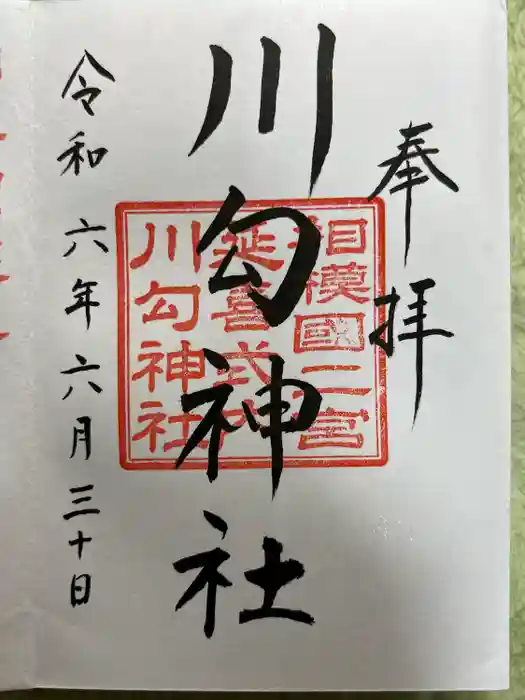 奉拝
川勾神社
令和六年六月三十日
相模國二宮
延喜式
川勾神社